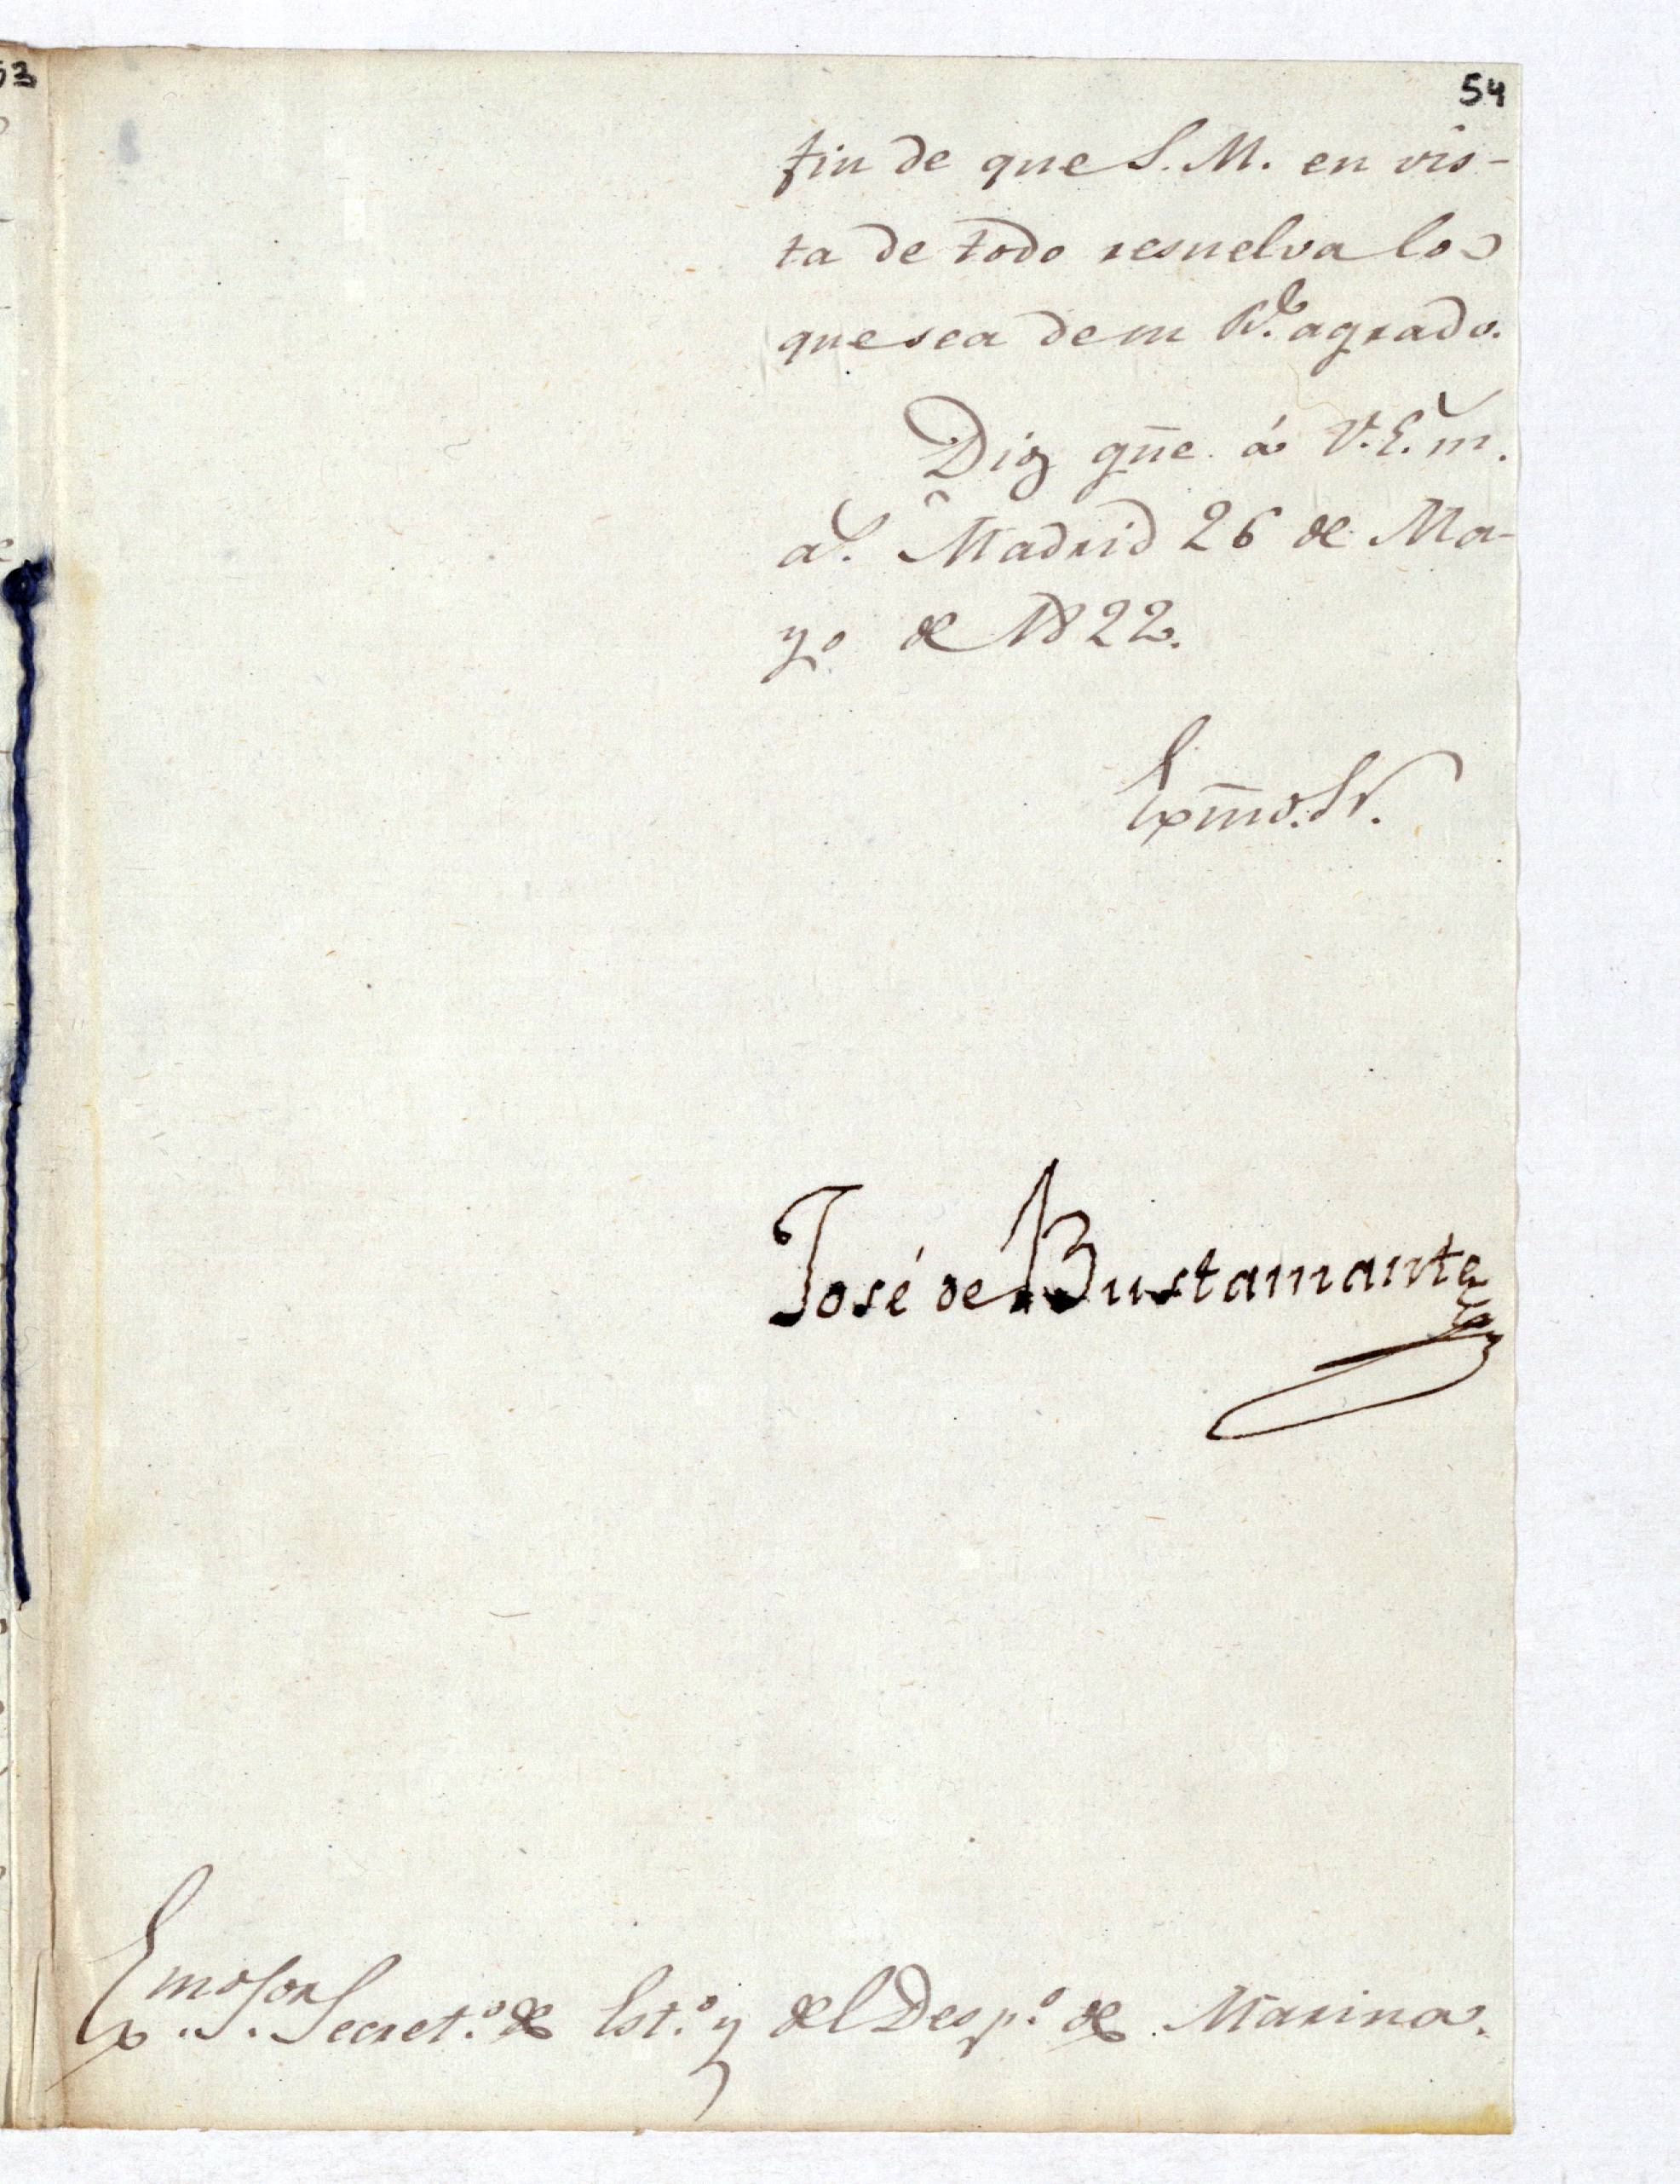 53
54
fin de que S. M. en vis-
ta de todo resuelva lo
que sea de su Rl. agrado.
Dios gũe. á V. E. m.
as. Madrid 26 de Ma-
yo de 1822.
Exm̃o. Sr.
José de Bustamante
Exmo. Sor. Secret.o de Est.o y del Desp.o de Marina.